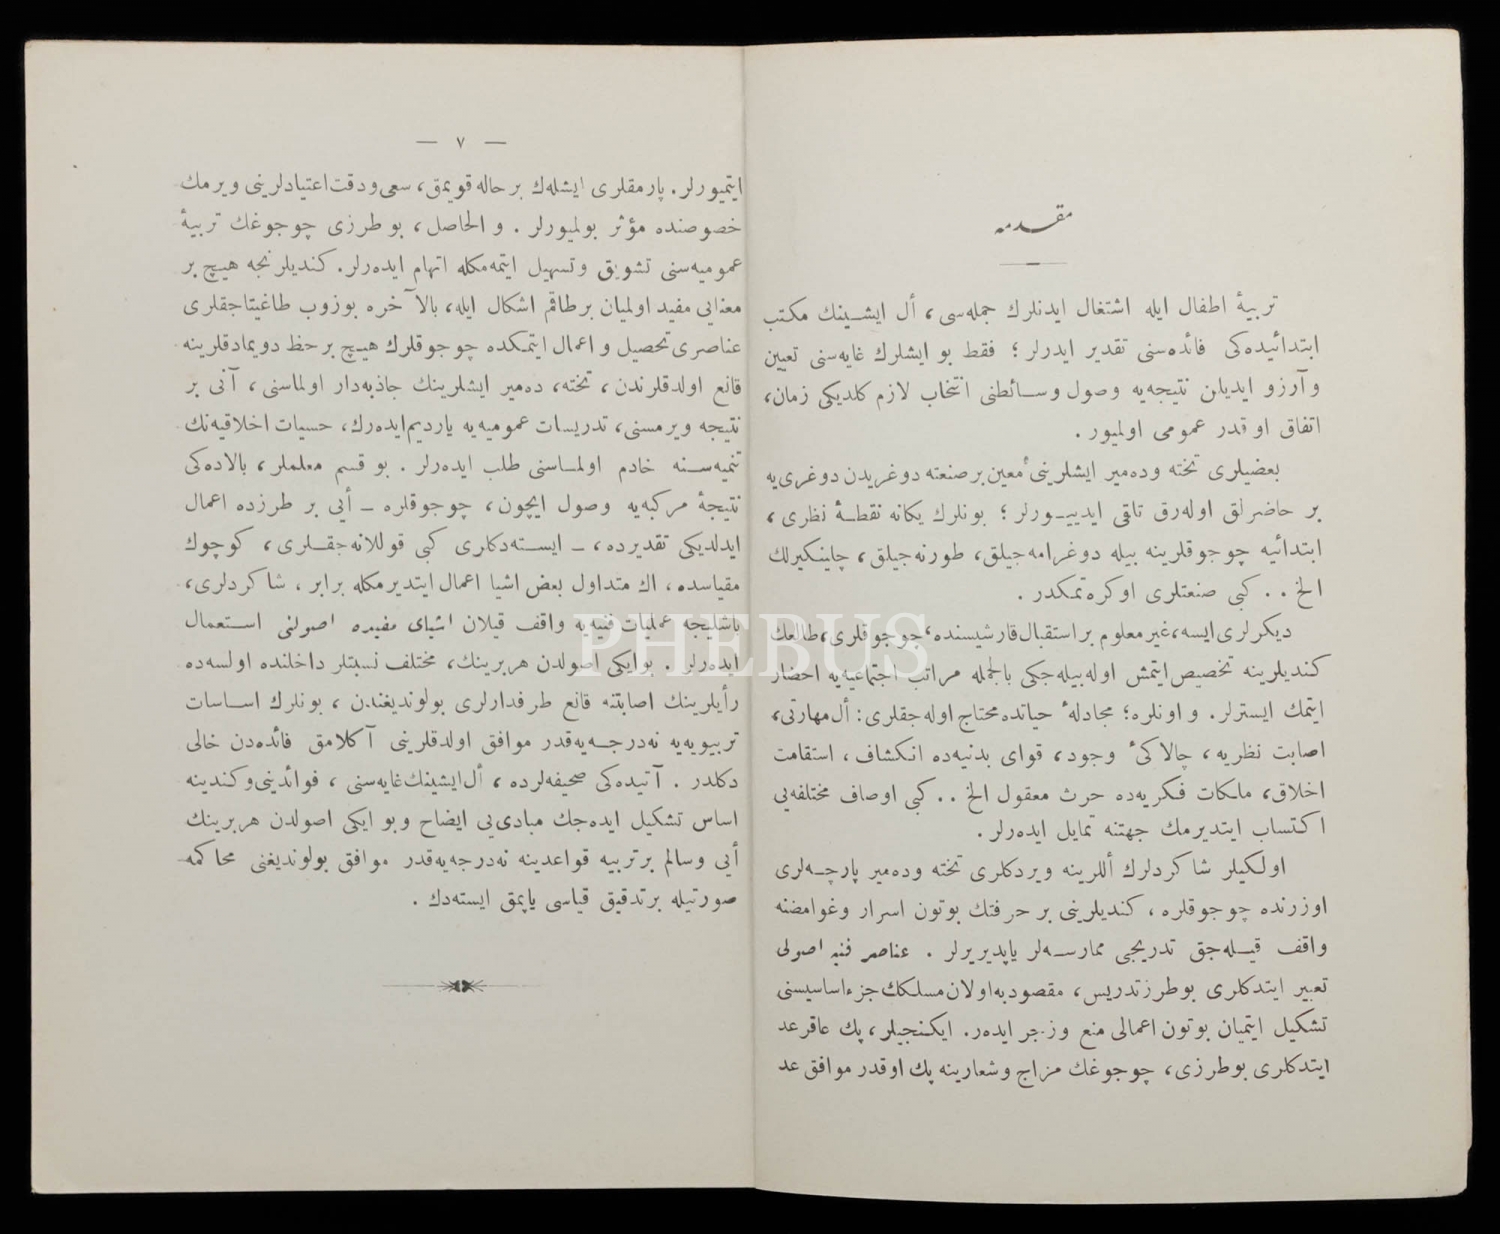 مقدمه
تربیهٔ اطفال ایله اشتغال ایدنلرك جمله‌سی، أل ایشینك مكتب
ابتدائیده‌كی فائده‌سنی تقدیر ایدرلر؛ فقط بو ایشلرك غایه‌سنی تعیین
و آرزو ایدیلن نتیجه‌یه وصول وسائطنی انتخاب لازم كلدیكی زمان،
اتفاق او قدر عمومی اولمیور.
بعضیلری تخته ودمیر ایشلرینی معین بر صنعته دوغریدن دوغری‌یه
بر حاضرلق اوله‌رق تلقی ایدییورلر؛ بونلرك یكانه نقطهٔ نظری،
ابتدائیه چوجوقلرینه بیله دوغرامه‌جیلق، طورنه‌جیلق، چلینكیرلك
الخ.. كبی صنعتلری اوكره‌تمكدر.
دیكرلری ایسه، غیر معلوم بر استقبال قارشیسنده، چوجوقلری، طالعك
كندیلرینه تخصیص ایتمش اوله‌بیله‌جكی بالجمله مراتب اجتماعیه‌یه احضار
ایتمك ایسترلر. و اونلره؛ مجادلهٔ حیاتده محتاج اوله‌جقلری: أل مهارتی،
اصابت نظریه، چالاكیٔ وجود، قوای بدنیه‌ده انكشاف، استقامت
اخلاق، ملكات فكریه‌ده حرث معقول الخ.. كبی اوصاف مختلفه‌یی
اكتساب ایتدیرمك جهتنه تمایل ایده‌رلر.
اولكیلر شاكردلرك أللرینه ویردكلری تخته ودمیر پارچه‌لری
اوزرنده چوجوقلره، كندیلرینی بر حرفتك بوتون اسرار وغوامضنه
واقف قیله‌جق تدریجی ممارسه‌لر یاپدیریرلر. عناصر فنیه اصولی
تعبیر ایتدكلری بو طرز تدریس، مقصود به اولان مسلكك جزء اساسیسنی
تشكیل ایتمیان بوتون اعمالی منع وزجر ایده‌ر. ایكنجیلر، پك عاقر عد
ایتدكلری بو طرزی، چوجوغك مزاج وشعارینه پك اوقدر موافق عد
— ٧ —
ایتمیورلر. پارمقلری ایشله‌ك بر حاله قویمق، سعی ودقت اعتیادلرینی ویرمك
خصوصنده مؤثر بولمیورلر. والحاصل، بو طرزی چوجوغك تربیهٔ
عمومیه‌سنی تشویق وتسهیل ایتمه‌مكله اتهام ایده‌رلر. كندیلرنجه هیچ بر
معنایی مفید اولمیان بر طاقم اشكال ایله، بالآخره بوزوب طاغیتاجقلری
عناصری تحصیل و اعمال ایتمكده چوجوقلرك هیچ بر حظ دویمادقلرینه
قانع اولدقلرندن، تخته، ده‌میر ایشلرینك جاذبه‌دار اولماسنی، آنی بر
نتیجه ویرمسنی، تدریسات عمومیه‌یه یاردیم ایده‌رك، حسیات اخلاقیه‌نك
تنمیه‌سنه خادم اولماسنی طلب ایده‌رلر. بو قسم معلملر، بالاده‌كی
نتیجهٔ مركبه‌یه وصول ایچون، چوجوقلره ـ أیی بر طرزده اعمال
ایدلدیكی تقدیرده، ـ ایسته‌دكلری كبی قوللانه‌جقلری، كوچوك
مقیاسده، اك متداول بعض اشیا اعمال ایتدیرمكله برابر، شاكردلری،
باشلیجه عملیات فنیه‌یه واقف قیلان اشیای مفیده اصولنی استعمال
ایده‌رلر. بو ایكی اصولدن هر برینك، مختلف نسبتلر داخلنده اولسه‌ده
رأیلرینك اصابتنه قانع طرفدارلری بولوندیغندن، بونلرك اساسات
تربیویه‌یه نه‌درجه‌یه‌قدر موافق اولدقلرینی آكلامق فائده‌دن خالی
دكلدر. آتیده‌كی صحیفه‌لرده، أل ایشینك غایه‌سنی، فوائدینی وكندینه
اساس تشكیل ایده‌جك مبادی‌یی ایضاح وبو ایكی اصولدن هر برینك
أیی وسالم بر تربیه قواعدینه نه‌درجه‌یه‌قدر موافق بولوندیغنی محاكمه
صورتیله بر تدقیق قیاسی یاپمق ایسته‌دك.
PHEBUS